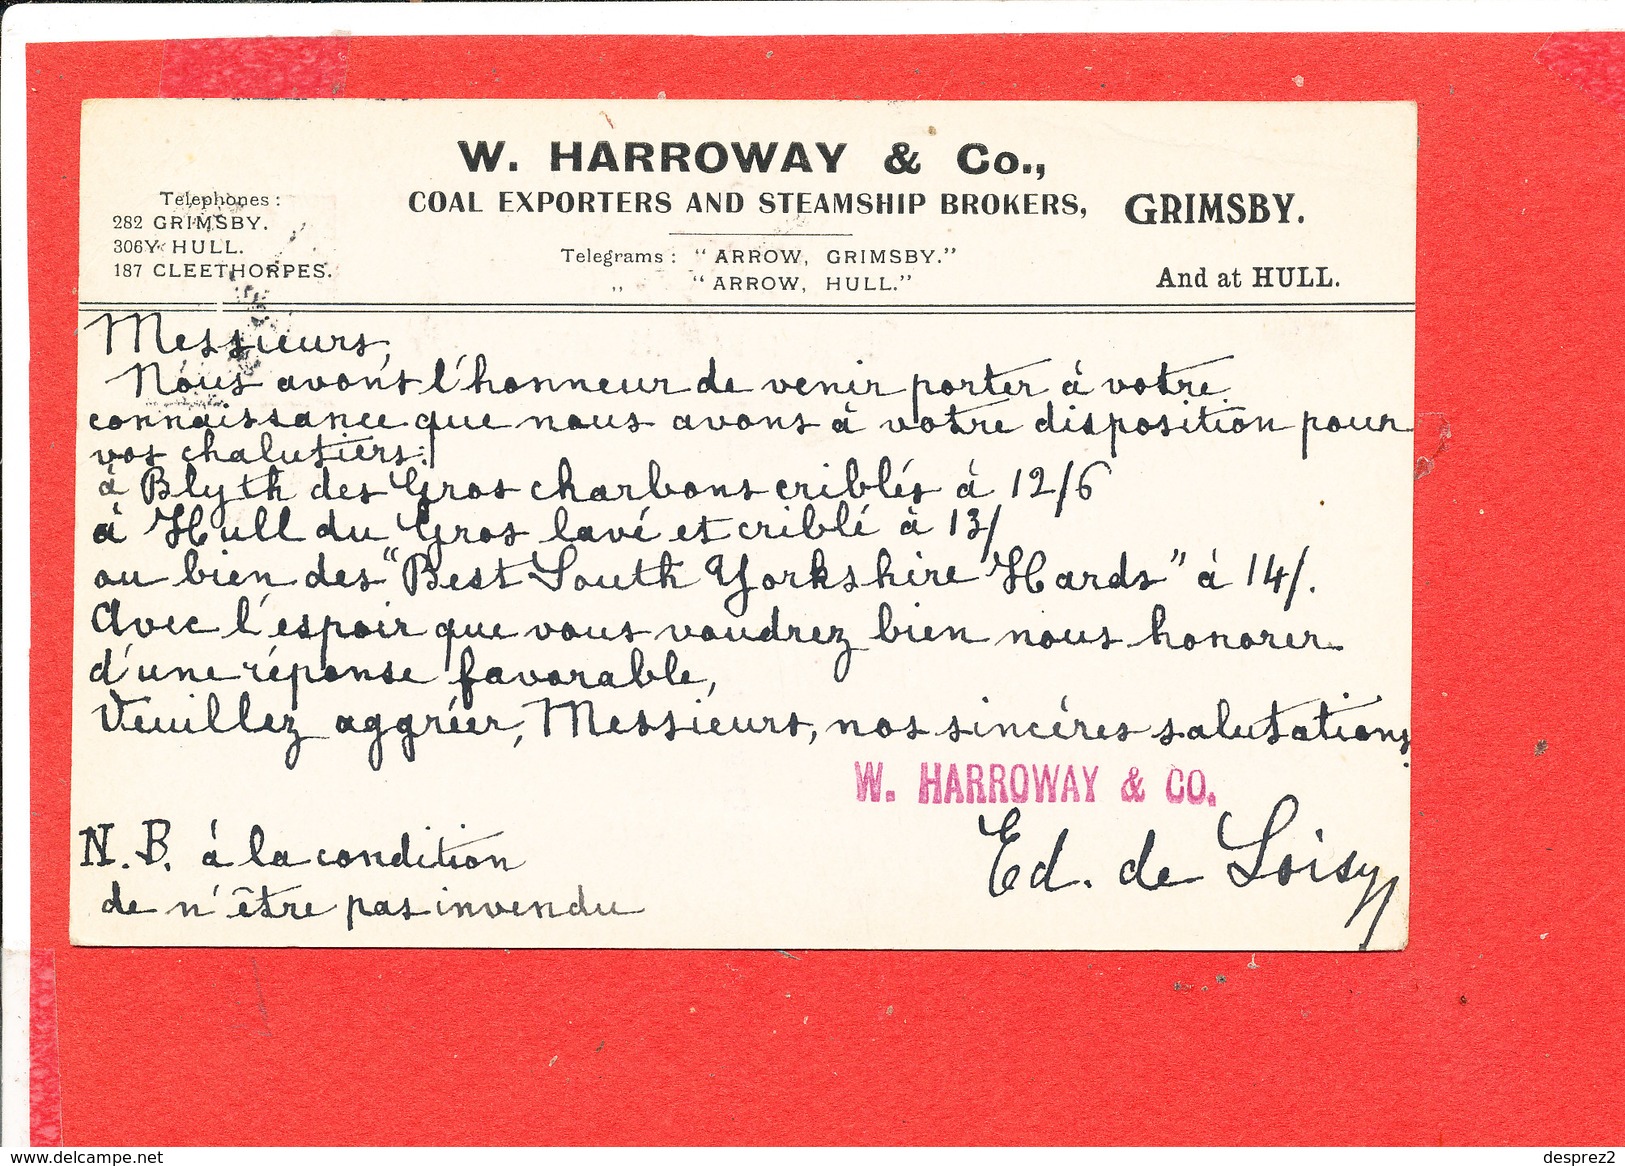 W. HARROWAY & Co.,
COAL EXPORTERS AND STEAMSHIP BROKERS, GRIMSBY.
Telephones :
282 GRIMSBY.
306Y HULL.
187 CLEETHORPES.
Telegrams : "ARROW, GRIMSBY."
,, "ARROW, HULL."
And at HULL.
Messieurs,
Nous avons l'honneur de venir porter à votre
connaissance que nous avons à votre disposition pour
vos chalutiers:
à Blyth des Gros charbons criblés à 12/6
à Hull du Gros lavé et criblé à 13/
ou bien des "Best South Yorkshire Hards" à 14/.
Avec l'espoir que vous voudrez bien nous honorer
d'une réponse favorable,
Veuillez aggréer, Messieurs, nos sincères salutations.
W. HARROWAY & CO.
Ed. de Loisy
N.B. à la condition
de n'être pas invendu
www.delcampe.net
desprez2